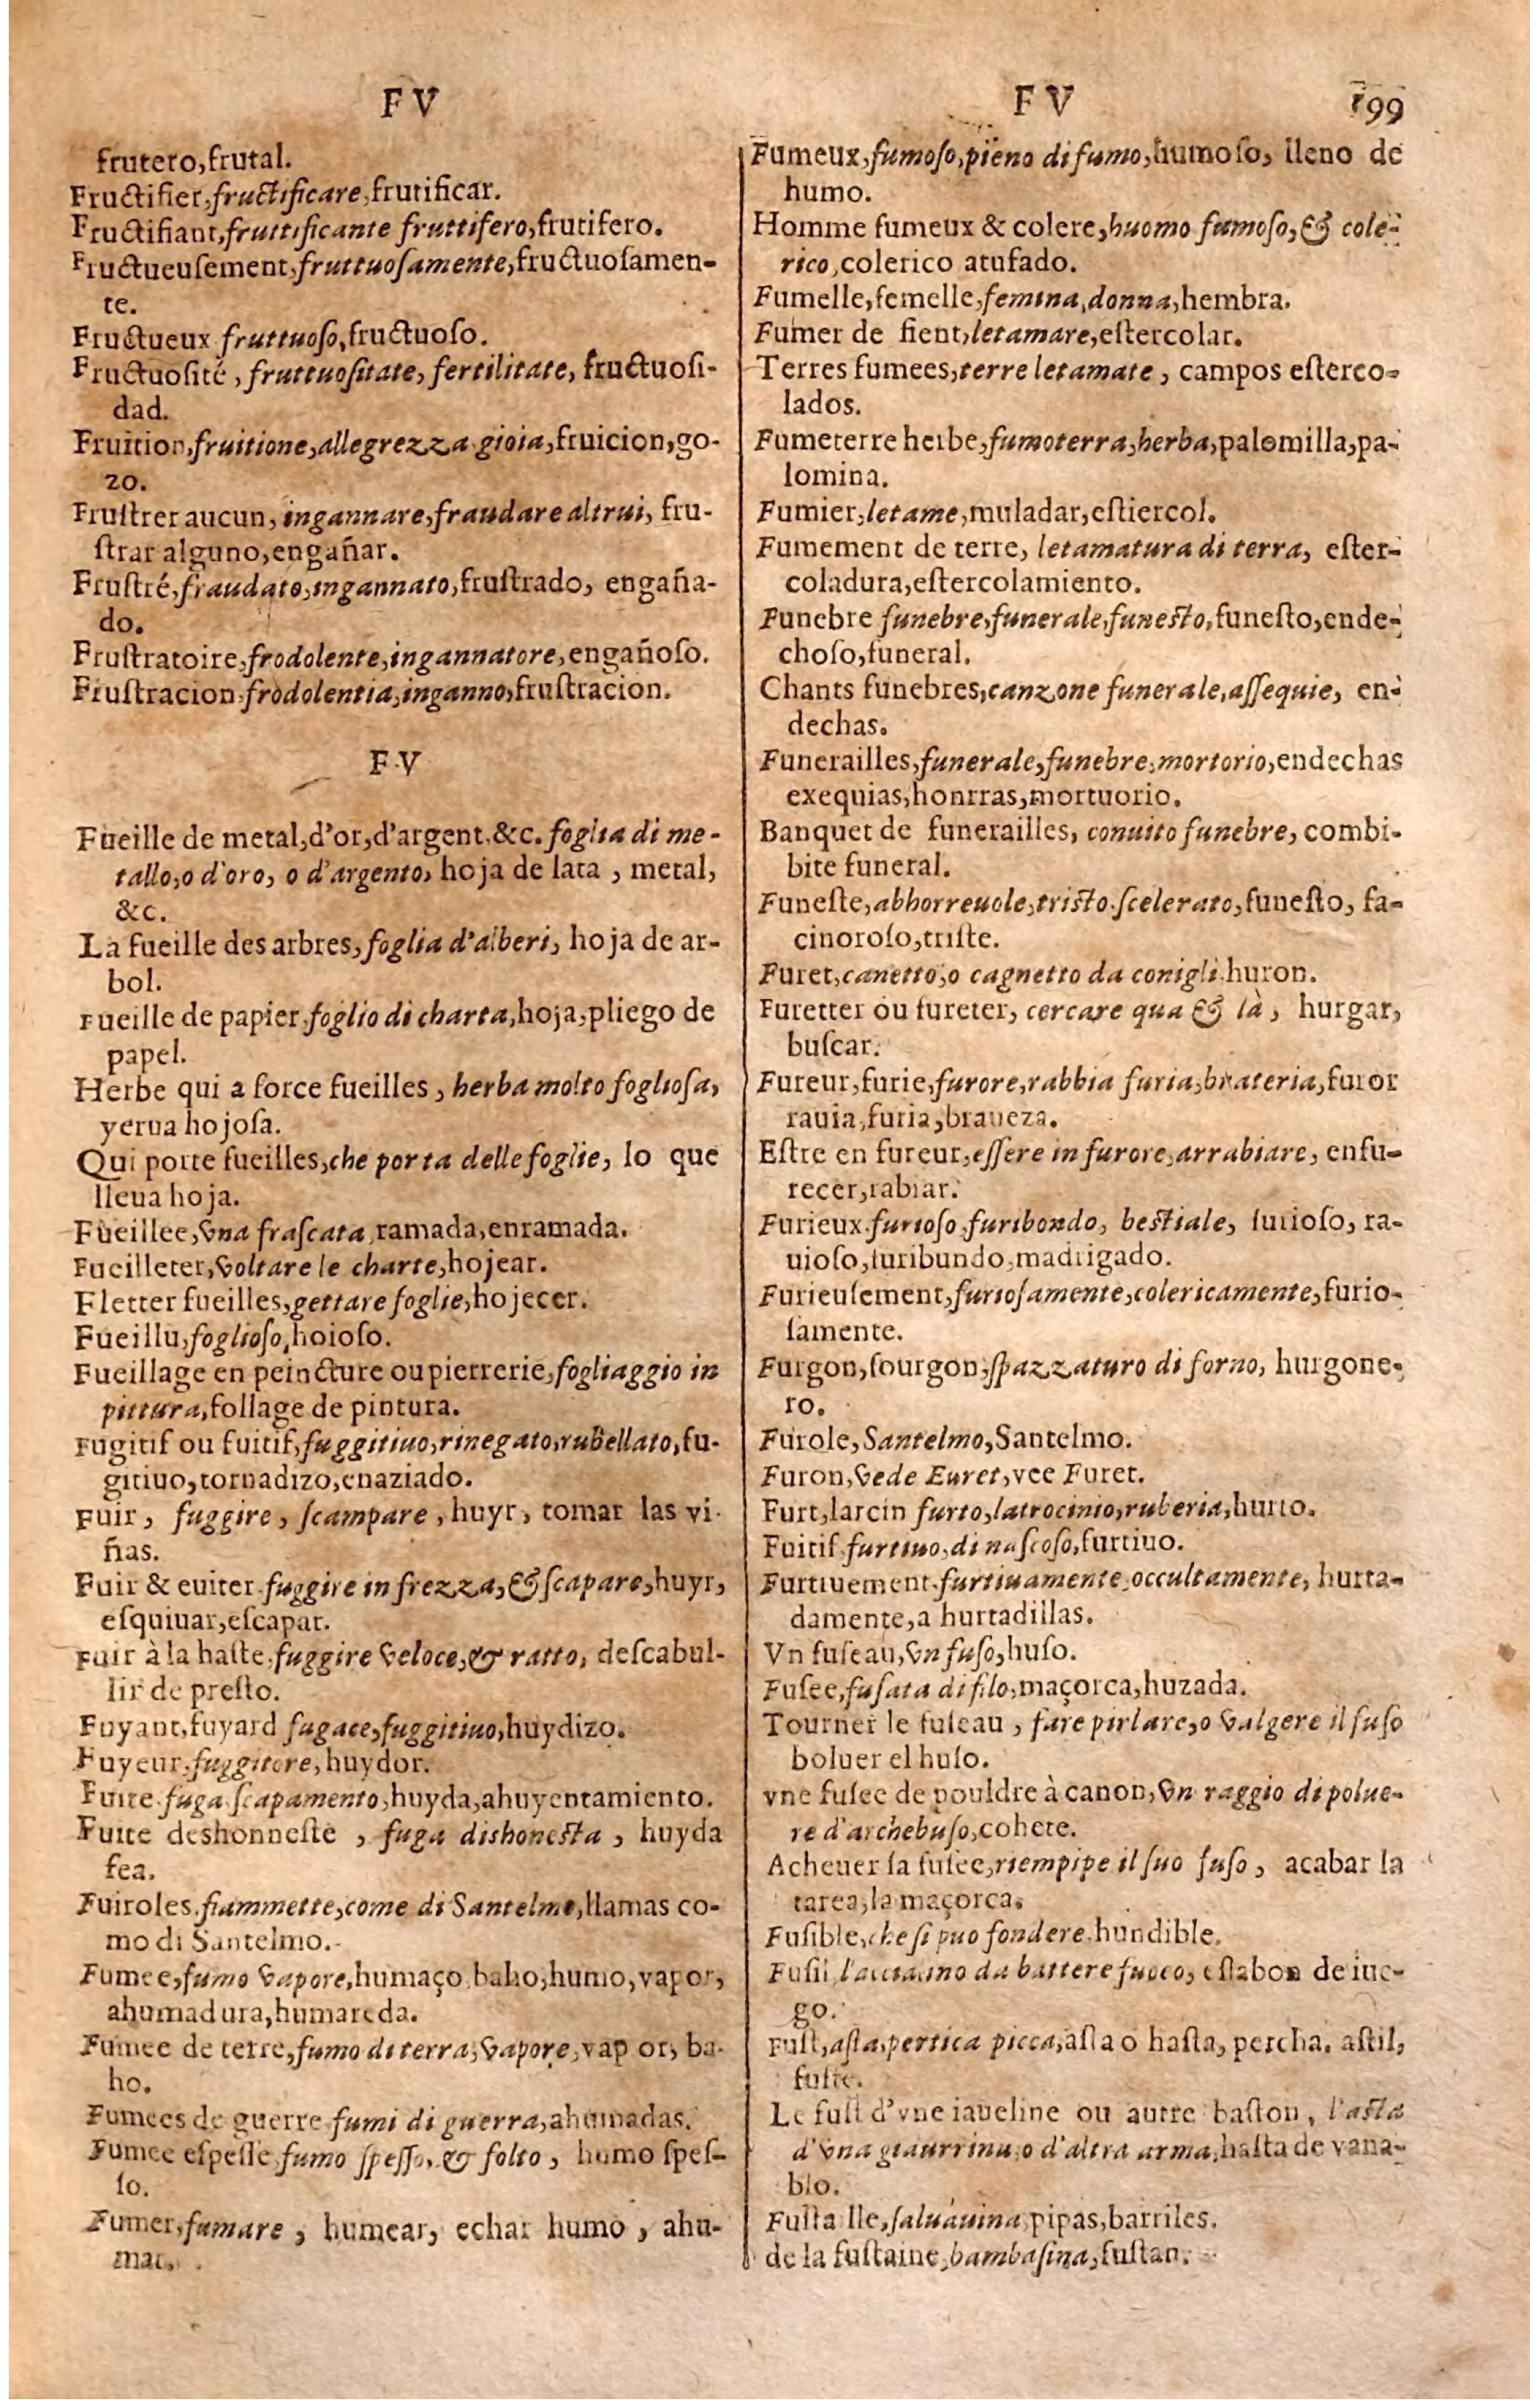 F V
frutero,frutal.
Fructifier,fructificare,frutificar.
Fructifiant,fruttificante fruttifero,frutifero.
Fructueuſement,fruttuoſamente,fructuoſamen-
te.
Fructueux fruttuoſo,fructuoſo.
Fructuoſité , fruttuoſitate, fertilitate, fructuoſi-
dad.
Fruition,fruitione,allegrezza gioia,fruicion,go-
zo.
Fruſtrer aucun, ingannare,fraudare altrui, fru-
ſtrar alguno,engañar.
Fruſtré,fraudato,ingannato,fruſtrado, engaña-
do.
Fruſtratoire,frodolente,ingannatore,engañoſo.
Fruſtracion,frodolentia,inganno,fruſtracion.
F V
Fueille de metal,d'or,d'argent,&c. foglia di me-
tallo,o d'oro, o d'argento, hoja de lata , metal,
&c.
La fueille des arbres,foglia d'alberi, hoja de ar-
bol.
Fueille de papier,foglio di charta,hoja,pliego de
papel.
Herbe qui a force fueilles , herba molto fogliosa,
yerua hojoſa.
Qui porte fueilles,che porta delle foglie, lo que
lleua hoja.
Fueillee,vna fraſcata,ramada,enramada.
Fueilleter,voltare le charte,hojear.
Fletter fueilles,gettare foglie,hojecer.
Fueillu,foglioſo,hoioſo.
Fueillage en peincture ou pierrerie,fogliaggio in
pittura,follage de pintura.
Fugitif ou fuitif,fuggitiuo,rinegato,rubellato,fu-
gitiuo,tornadizo,enaziado.
Fuir , fuggire , ſcampare , huyr, tomar las vi-
ñas.
Fuir & euiter.fuggire in frezza,& ſcapare,huyr,
eſquiuar,eſcapar.
Fuir à la haſte,fuggire veloce,& ratto, deſcabul-
lir de preſto.
Fuyant,fuyard fugace,fuggitiuo,huydizo.
Fuyeur,fuggitore,huydor.
Fuite.fuga.ſcapamento,huyda,ahuyentamiento.
Fuite deshonneſte , fuga dishoneſta , huyda
fea.
Fuiroles.fiammette,come di Santelmo,llamas co-
mo di Santelmo.
Fumee,fumo vapore,humaço,baho,humo,vapor,
ahumadura,humareda.
Fumee de terre,fumo di terra,vapore,vap or, ba-
ho.
Fumees de guerre fumi di guerra,ahumadas.
Fumee eſpeſſe fumo ſpeſſo, & folto , humo ſpeſ-
ſo.
Fumer,fumare , humear, echar humo , ahu-
mar.
F V 199
Fumeux,fumoſo,pieno di fumo,humoſo, lleno de
humo.
Homme fumeux & colere,huomo fumoſo,& cole-
rico,colerico atufado.
Fumelle,femelle,femina,donna,hembra.
Fumer de fient,letamare,eſtercolar.
Terres fumees,terre letamate , campos eſterco-
lados.
Fumeterre herbe,fumoterra,herba,palomilla,pa-
lomina.
Fumier,letame,muladar,eſtiercol.
Fumement de terre, letamatura di terra, eſter-
coladura,eſtercolamiento.
Funebre funebre,funerale,funeſto,funeſto,ende-
choſo,funeral.
Chants funebres,canzone funerale,aſſequie, en-
dechas.
Funerailles,funerale,funebre,mortorio,endechas
exequias,honrras,mortuorio.
Banquet de funerailles, conuito funebre, combi-
bite funeral.
Funeſte,abhorreuole,triſto.ſcelerato,funeſto, fa-
cinoroſo,triſte.
Furet,canetto,o cagnetto da conigli.huron.
Furetter ou fureter, cercare qua & là , hurgar,
buſcar.
Fureur,furie,furore,rabbia furia,braueria,furor
rauia,furia,braueza.
Eſtre en fureur,eſſere in furore,arrabiare, enfu-
recer,rabiar.
Furieux.furioſo.furibondo, beſtiale, furioſo, ra-
uioſo,furibundo,madrigado.
Furieuſement,furioſamente,colericamente,furio-
ſamente.
Furgon,fourgon,ſpazzaturo di forno, hurgone-
ro.
Furole,Santelmo,Santelmo.
Furon,vede Euret,vee Furet.
Furt,larcin furto,latrocinio,ruberia,hurto.
Fuitif.furtiuo,di naſcoſo,furtiuo.
Furtiuement.furtiuamente,occultamente, hurta-
damente,a hurtadillas.
Vn fuſeau,vn fuſo,huſo.
Fuſee,fuſata di filo,maçorca,huzada.
Tourner le fuſeau , fare pirlare,o valgere il fuſo
boluer el huſo.
vne fuſee de pouldre à canon,vn raggio di polue-
re d'archebuſo,cohete.
Acheuer ſa fuſee,riempipe il ſuo fuſo , acabar la
tarea,la maçorca.
Fuſible,che ſi puo fondere.hundible.
Fuſil l'acciaino da battere fuoco, eſlabon de iue-
go.
Fuſt,aſta,pertica picca,aſta o haſta, percha. aſtil,
fuſte.
Le fuſt d'vne iaueline ou autre baſton, l'aſta
d'vna giaurrina,o d'altra arma,haſta de vana-
blo.
Fuſta lle,ſaluauina,pipas,barriles.
de la fuſtaine,bambaſina,fuſtan.